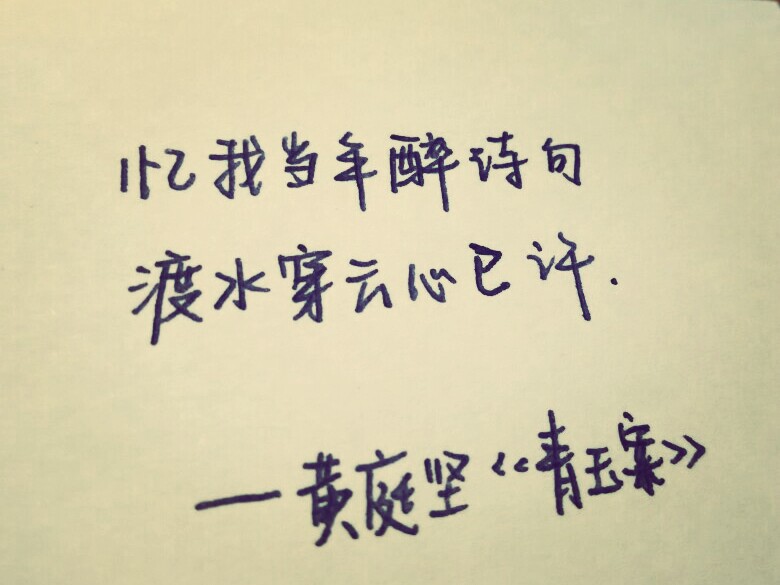 忆我当年醉诗句
渡水穿云心已许.
——黄庭坚《青玉案》